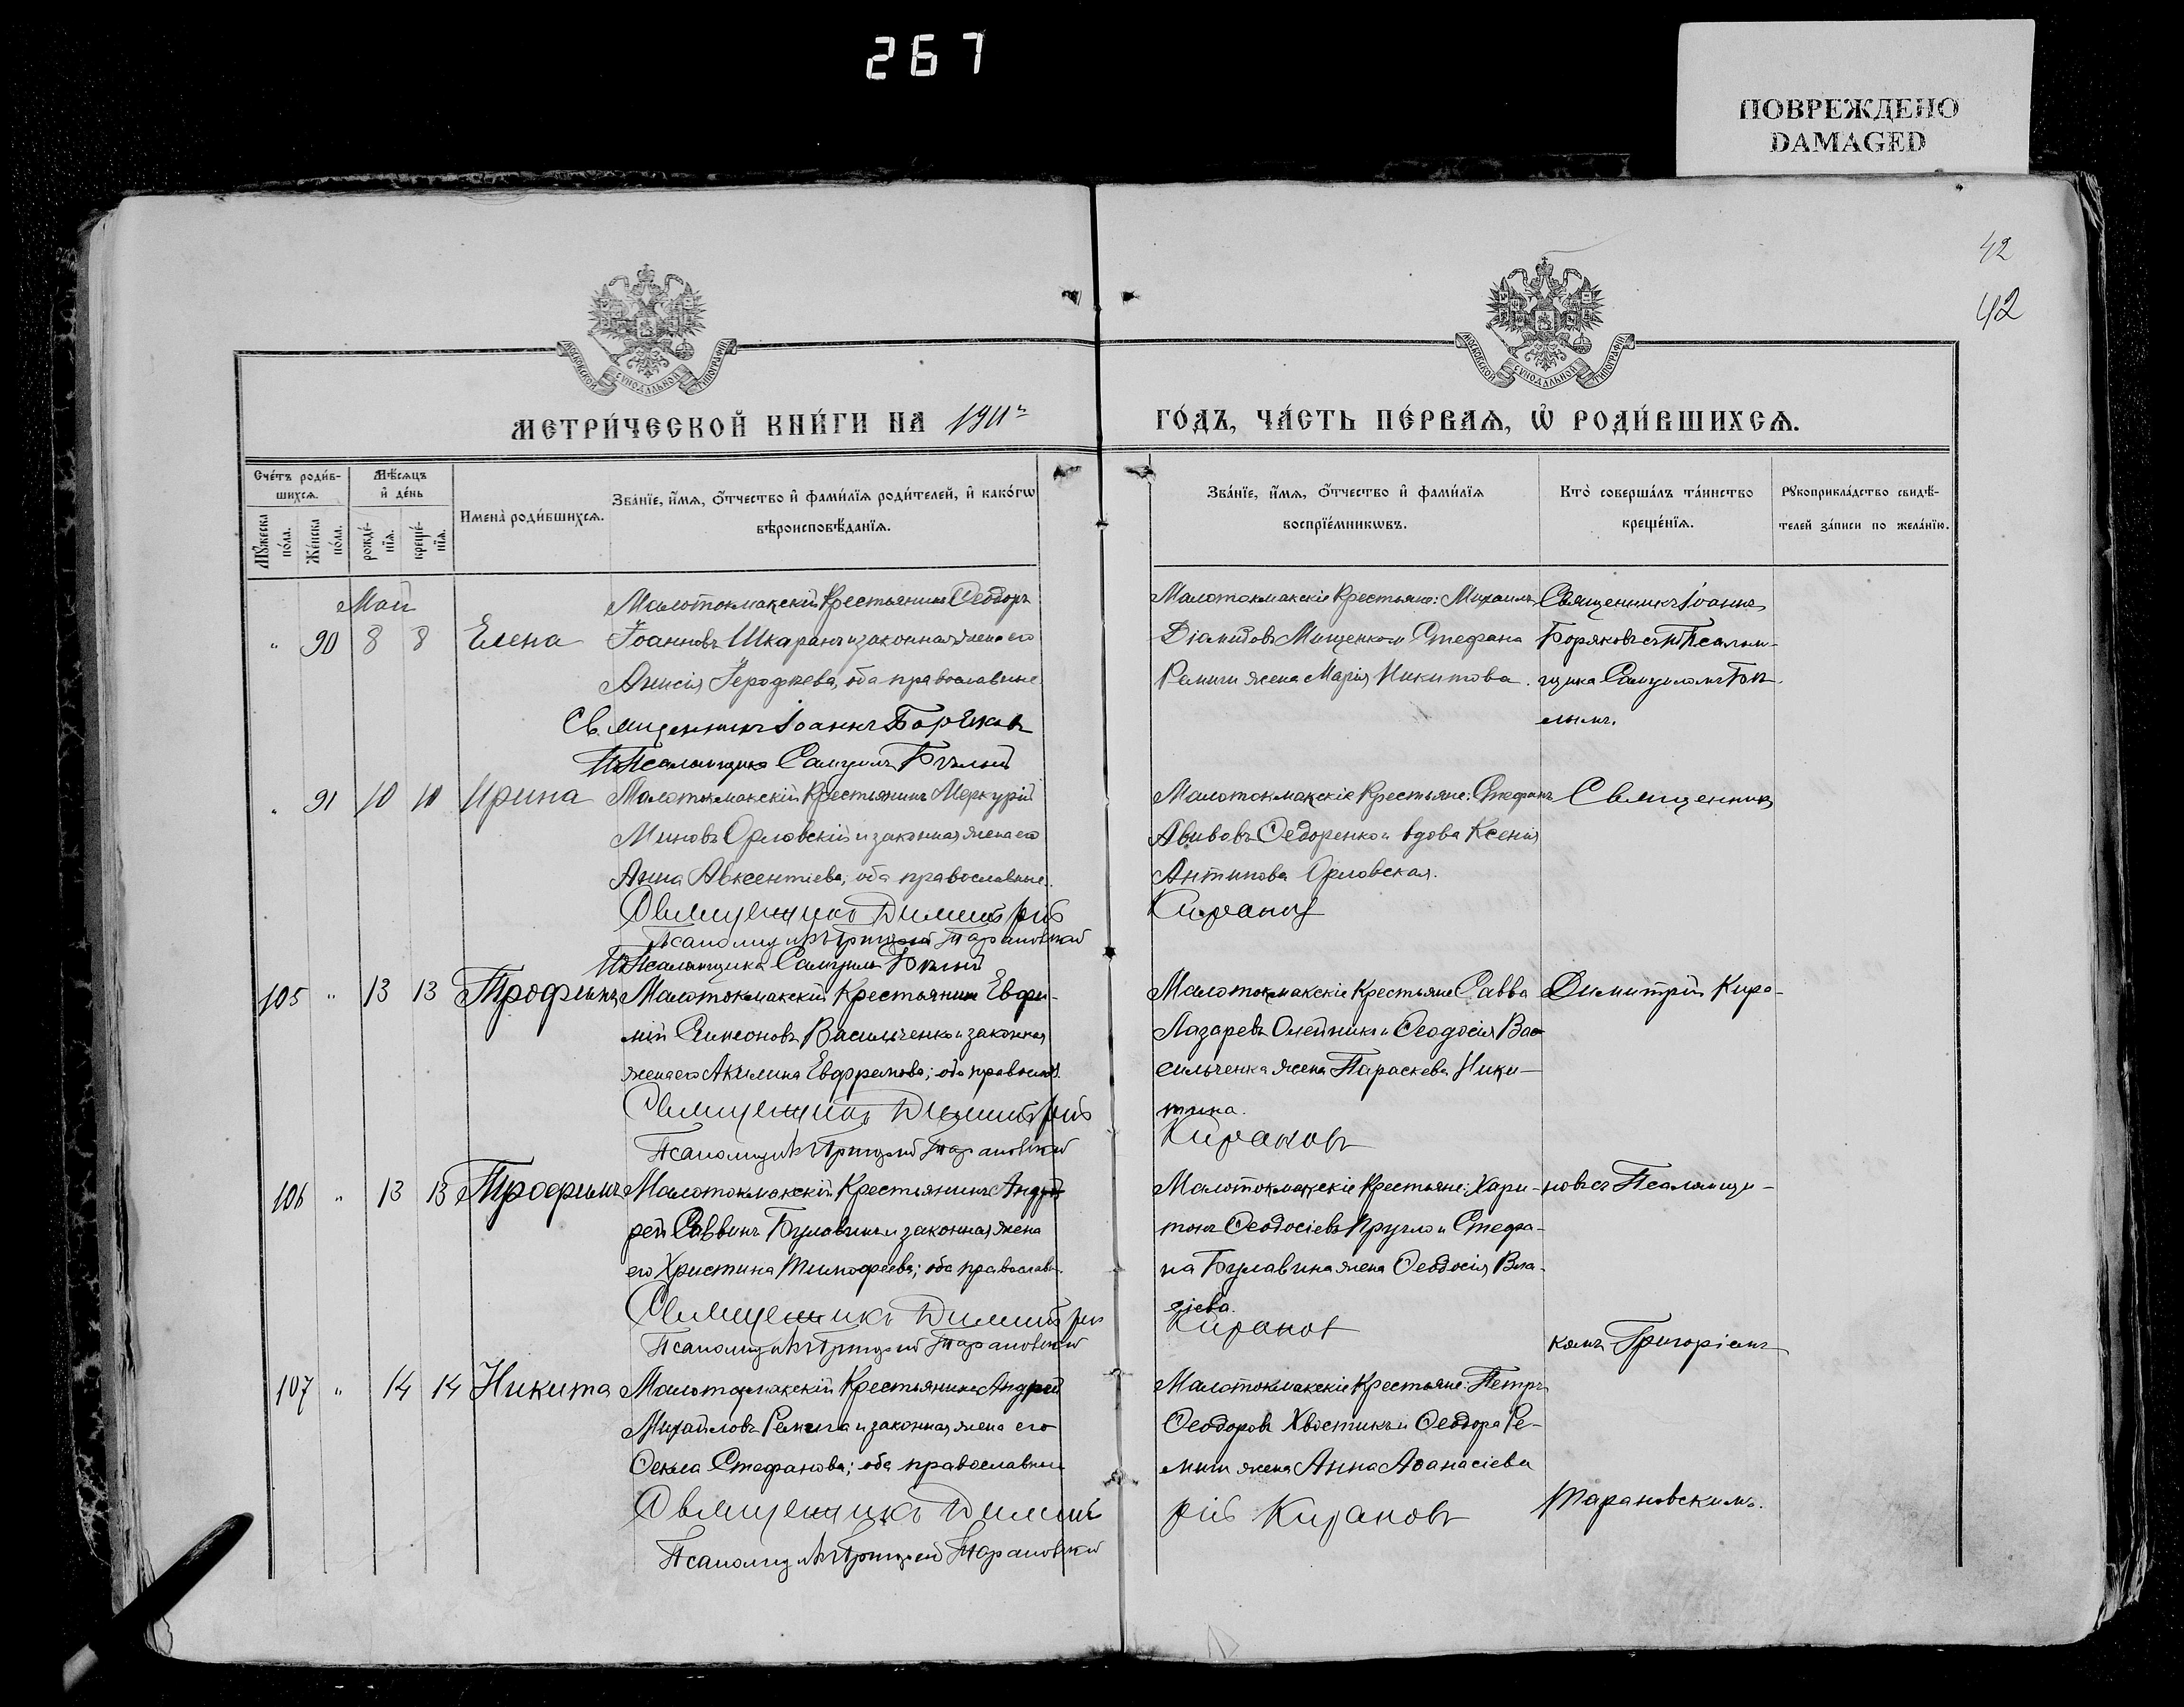 267
ПОВРЕЖДЕНО
DAMAGED
42
42
МОСКОВСКОЙ СѴНОДАЛЬНОЙ ТИПОГРАФІИ
МОСКОВСКОЙ СѴНОДАЛЬНОЙ ТИПОГРАФІИ
МЕТРИ́ЧЕСКОЙ КНИ́ГИ НА 1911 ГО́ДЪ, ЧА́СТЬ ПЕ́РВАЯ, Ѡ҆ РОДИ́ВШИХСЯ.
Сче́тъ роди́в-
шихся.
Мѣ́сяцъ
и҆ де́нь
Мꙋ́жеска по́ла.
Же́нска по́ла.
рожде́-
нїя.
креще́-
нїя.
Имена̀ роди́вшихся.
Зва́нїе, и҆́мя, ѻ҆́тчество и҆ фами́лїя роди́телей, и҆ како́гѡ
вѣроисповѣ́данїя.
Зва́нїе, и҆́мя, ѻ҆́тчество и҆ фами́лїя
воспрїе́мникѡвъ.
Кто̀ соверша́лъ та́инство
креще́нїя.
Рꙋкоприкла́дство свидѣ́-
телей за́писи по жела́нїю.
Май
" 90 8 8 Елена
Малотокмакскій Крестьянинъ Ѳеодоръ
Іоанновъ Шкаранъ и законная жена его
Анисія Іерофеева, оба православные
Священникъ Іоаннъ Боряковъ
И.д. Псаломщика Самуилъ Бѣлый
Малотокмакскіе Крестьяне: Михаилъ
Діамидовъ Мищенко и Стефана
Ремиги жена Марія Никитова.
Священникъ Іоаннъ
Боряковъ съ и.д. Псалом-
щика Самуиломъ Бѣ-
лымъ.
" 91 10 10 Ирина
Малотокмакскій Крестьянинъ Меркурій
Миновъ Орловскій и законная жена его
Анна Авксентіева, оба православные.
Священникъ Димитрій
Псаломщикъ Григорій Тарановскій
И.д. Псаломщика Самуилъ Бѣлый
Малотокмакскіе Крестьяне: Стефанъ
Авивовъ Ѳедоренко и вдова Ксенія
Антипова Орловская.
Кирановъ
Священникъ
105 " 13 13 Трофимъ
Малотокмакскій Крестьянинъ Евфи-
мій Симеоновъ Васильченко и законная
жена его Акилина Евфремова; оба правосл.
Священникъ Димитрій
Псаломщикъ Григорій Тарановскій
Малотокмакскіе Крестьяне Савва
Лазаревъ Олейникъ и Ѳеодосія Ва-
сильченка жена Параскева Ники-
тина.
Кирановъ
Димитрій Кира-
106 " 13 13 Трофимъ
Малотокмакскій Крестьянинъ Анд
рей Саввинъ Булавинъ и законная жена
его Христина Тимофеева; оба православн.
Священникъ Димитрій
Псаломщикъ Григорій Тарановскій
Малотокмакскіе Крестьяне: Хари-
тонъ Ѳеодосіевъ Пругло и Стефа-
на Булавина жена Ѳеодосія Вла-
сіева.
Кирановъ
новъ съ Псаломщи-
комъ Григоріемъ
107 " 14 14 Никита
Малотокмакскій Крестьянинъ Андрей
Михаиловъ Ремига и законная жена его
Ѳекла Стефанова; оба православные
Священникъ Димит
Псаломщикъ Григорій Тарановскій
Малотокмакскіе Крестьяне: Петръ
Ѳеодоровъ Хвостикъ и Ѳеодора Ре-
миги жена Анна Аѳанасіева
рій Кирановъ
Тарановскимъ.